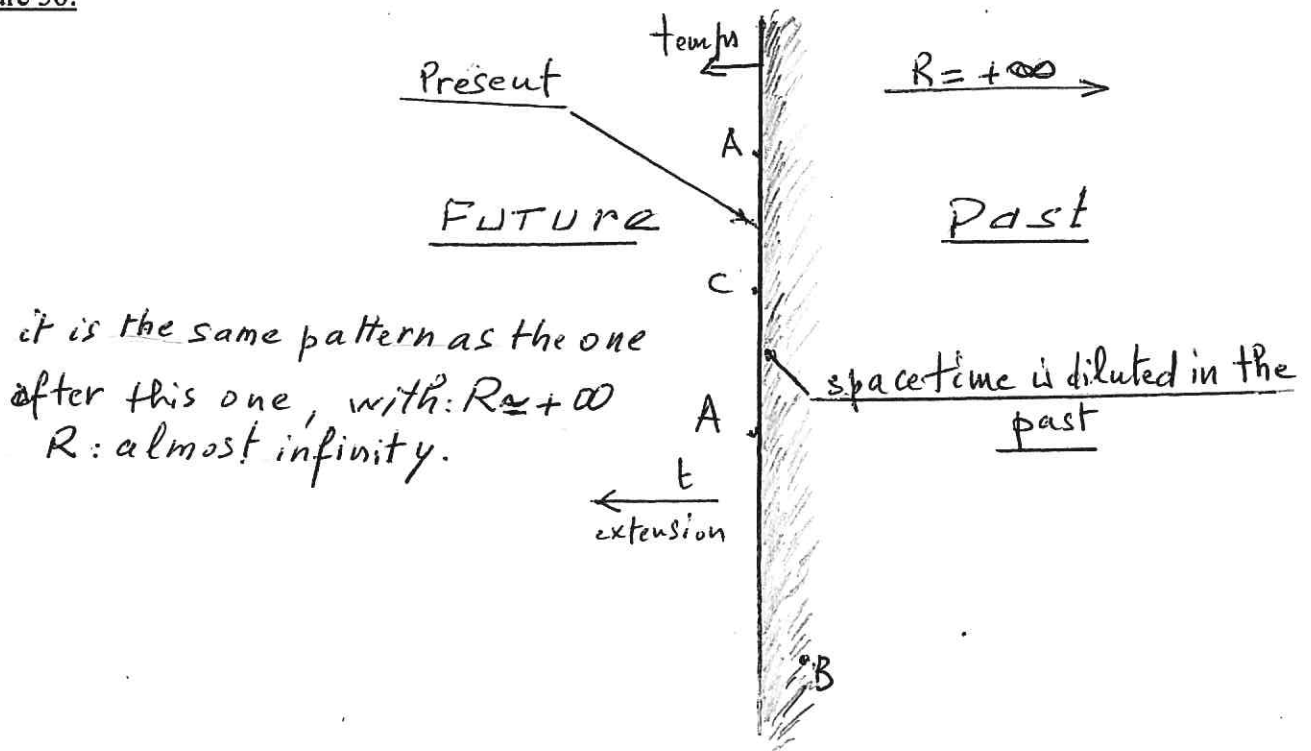 temps
R = +∞
Present
A
Future
Past
C
it is the same pattern as the one
after this one, with: R ≃ +∞
R : almost infinity.
spacetime is diluted in the
past
A
t
extension
B